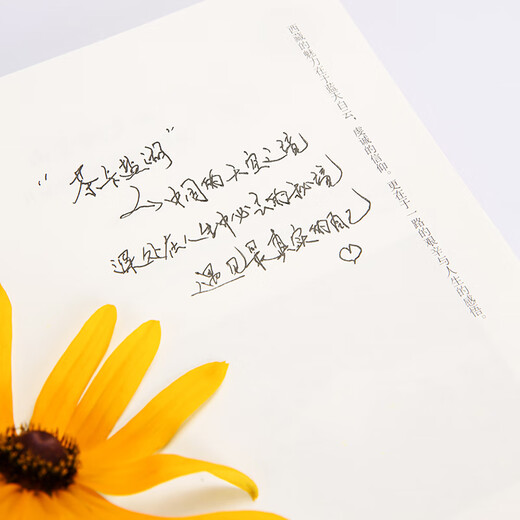 “茶卡盐湖”
→中国的天空之境
深处在人生中必去的秘境
遇见最真实的自己
西藏的魅力在于蓝天白云、虔诚的信仰。更在于一路的艰辛与人生的感悟。